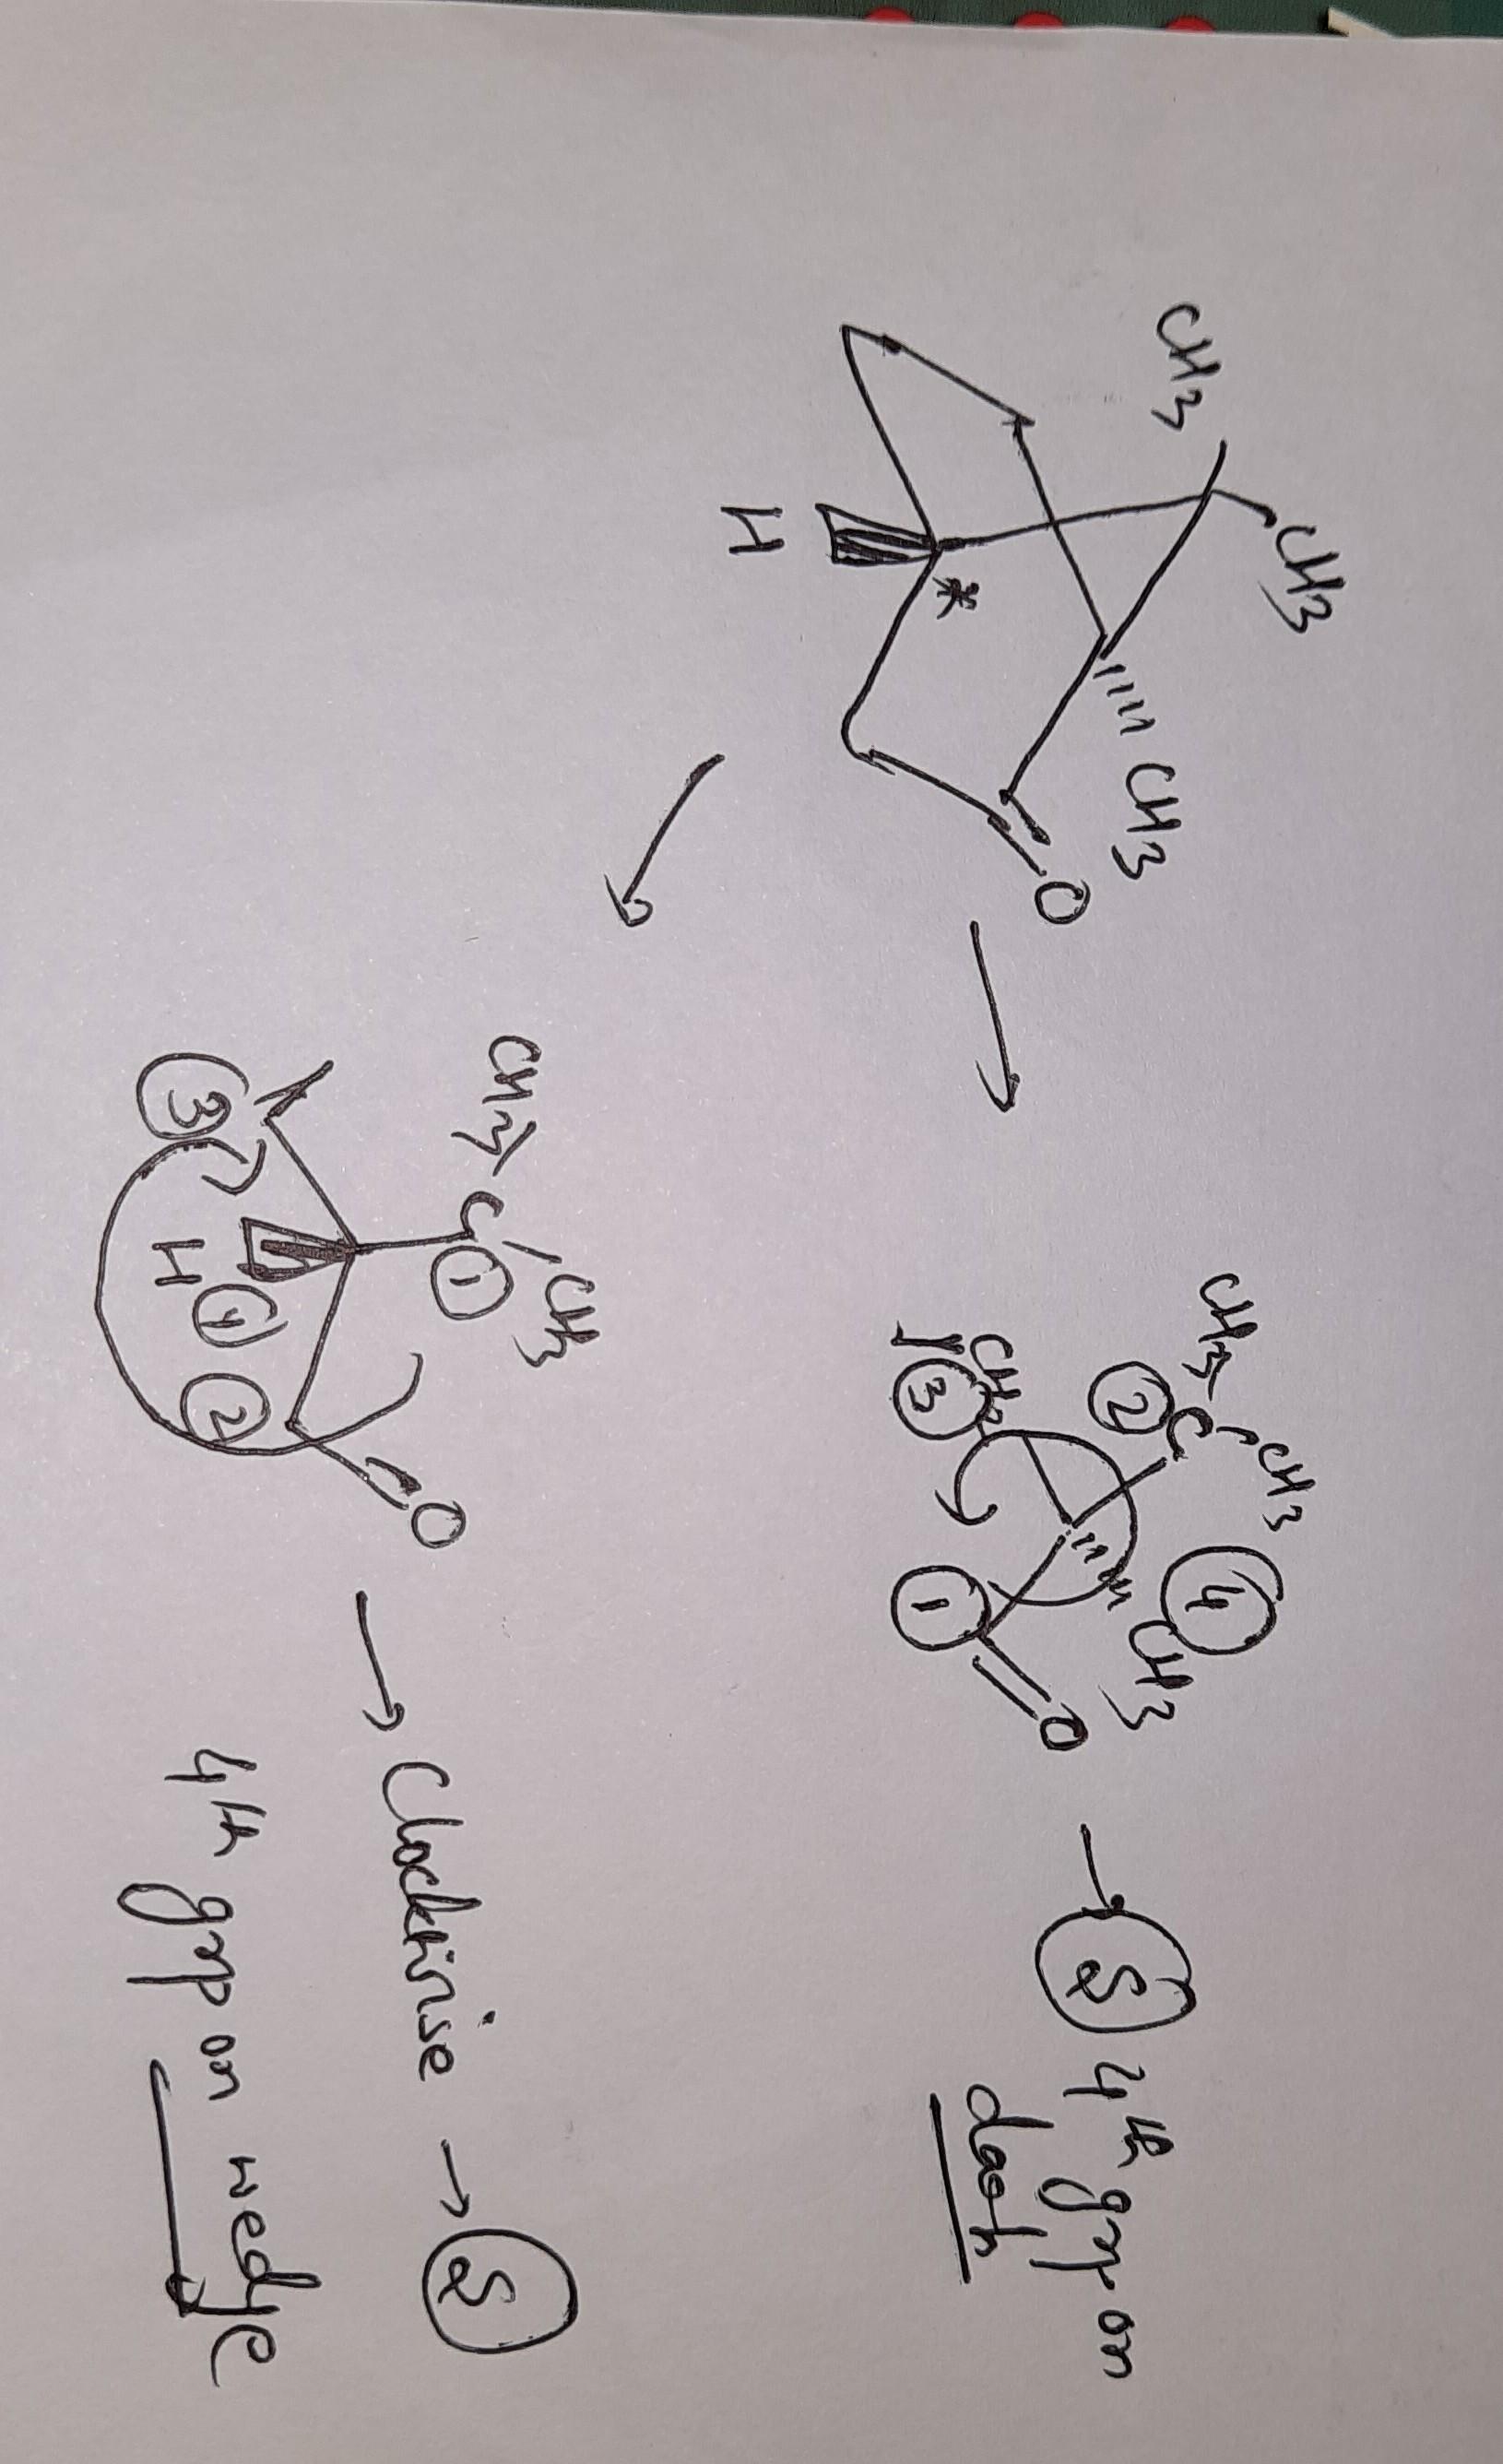 CH3
CH3
CH3
H
*
O
CH3
CH3
C
2
4
CH2
3
CH3
1
O
→ S 4th grp on
dash
CH3
CH3
C
1
3
H 4
2
O
→ Clockwise → S
4th grp on wedge